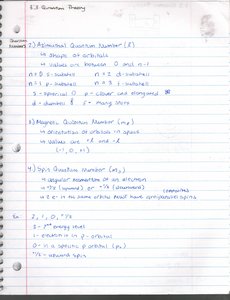 3.3 Quantum Theory
Quantum
Numbers
2) Azimuthal Quantum Number (l)
↳ shape of orbitals
↳ values are between 0 and n-1
n=0 s-subshell n=2 d-subshells
n=1 p-subshell n=3 f-subshells
s= spherical p= clover and elongated
d= dumbbell f= many more
3) Magnetic Quantum Number (ml)
↳ orientation of orbitals in space
↳ values are -l and l
(-1, 0, +1)
4) Spin Quantum Number (ms)
↳ angular momentum of an electron
↳ +1/2 (upward) or -1/2 (downward)
↳ 2 e- in the same orbital must have antiparallel spins
Ex: 2, 1, 0, +1/2
2 = 2nd energy level
1 = electron in p-orbital
0 = in a specific p orbital
+1/2 = upward spin